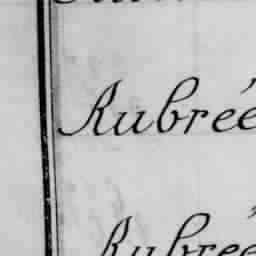 Rubrée
Rubrée